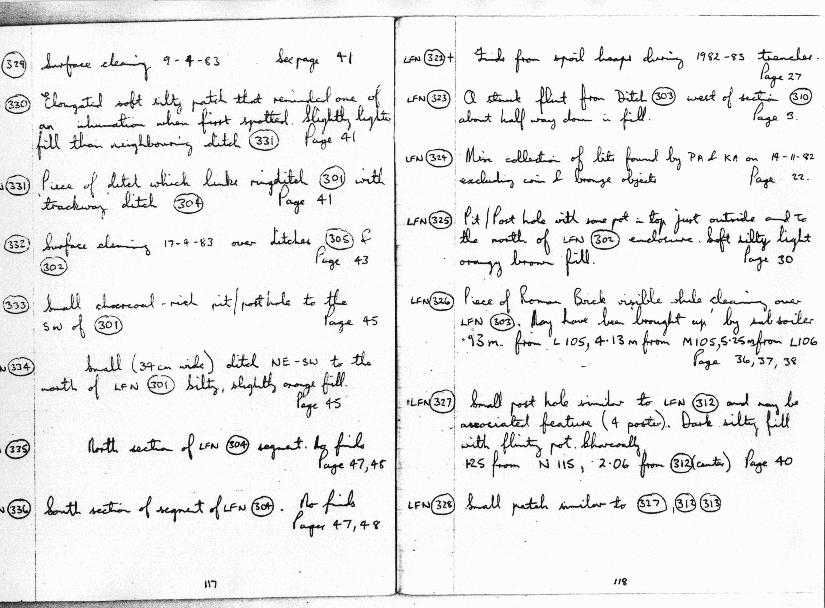 329 Surface cleaning 9-4-83 See page 41
330 Elongated soft silty patch that reminded one of
an inhumation when first spotted. Slightly lighter
fill than neighbouring ditch 331 Page 41
331 Piece of ditch which links ringditch 301 with
trackway ditch 304 Page 41
332 Surface cleaning 17-4-83 over ditches 305 &
302 Page 43
333 Small charcoal-rich pit/posthole to the
SW of 301 Page 45
N 334 Small (34cm wide) ditch NE-SW to the
north of LFN 301 Silty, slightly orange fill.
Page 45
335 North section of LFN 304 segment. No finds
Page 47,48
N 336 South section of segment of LFN 304. No finds
Pages 47,48
117
LFN 322+ Finds from spoil heaps during 1982-83 trenches.
Page 27
LFN 323 A struck flint from Ditch 303 west of section 310
about half way down in fill. Page 3.
LFN 324 Misc collection of bits found by PA & KA on 14-11-82
excluding coin & bronze objects Page 22.
LFN 325 Pit/Post hole with some pot in top just outside and to
the north of LFN 302 enclosure. Soft silty light
orangy brown fill. Page 30
LFN 326 Piece of Roman Brick visible while cleaning over
LFN 303. May have been 'brought up' by subsoiler
.93m. from L105, 4.13m from M105, 5.25m from L106
Page 36,37,38
LFN 327 Small post hole similar to LFN 312 and may be
associated feature (4 poster). Dark silty fill
with flinty pot. Charcoally
125 from N115, 2.06 from 312 (center) Page 40
LFN 328 Small patch similar to 327, 312 313
118